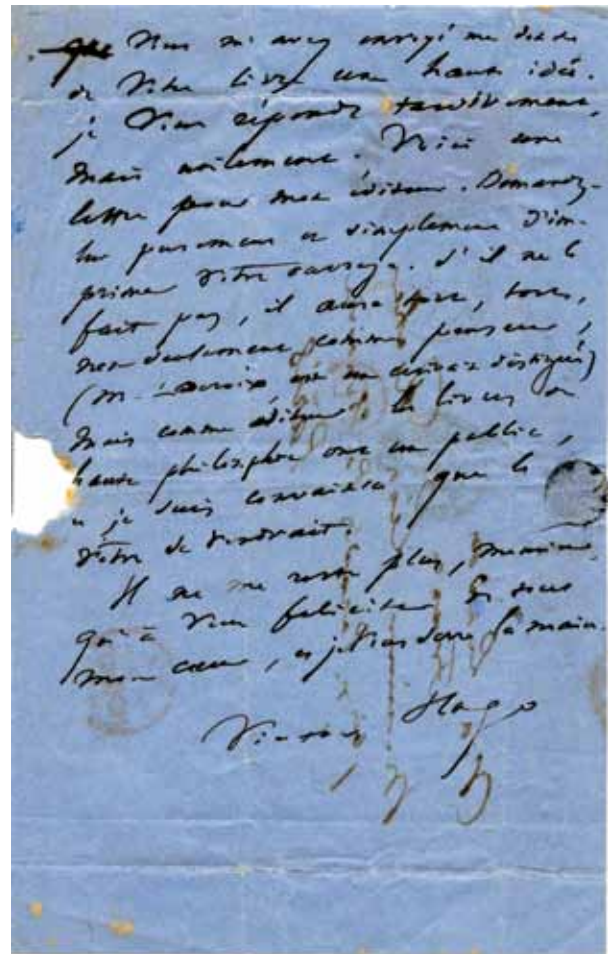 que vous m'avez envoyé me donne
de votre livre une haute idée.
je vous réponds tardivement,
mais utilement. Voici une
lettre pour mon éditeur. Demandez-
lui purement et simplement d'im-
primer votre ouvrage. S'il ne le
fait pas, il aura tort,
non seulement comme penseur,
(M. Lacroix est un écrivain distingué)
mais comme éditeur. les livres de
haute philosophie ont un public,
et je suis convaincu que le
vôtre se vendrait.
Il ne me reste plus, monsieur
qu'à vous féliciter de tout
mon cœur, et je vous serre la main.
Victor Hugo